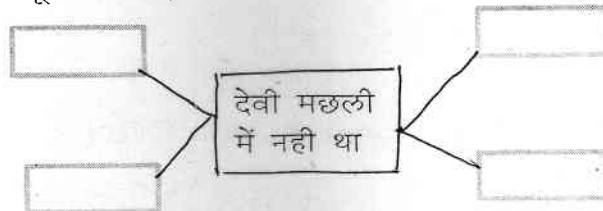 देवी मछली
में नही था